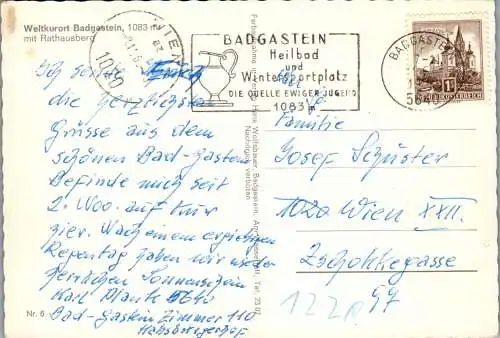 Weltkurort Badgastein, 1083 m
mit Rathausberg
WIEN
1010
BADGASTEIN
Heilbad
und
Wintersportplatz
DIE QUELLE EWIGER JUGEND
1083 m
BADGASTEIN
5640
REPUBLIK ÖSTERREICH
Ich sende Euch
die herzlichsten
Grüsse aus dem
schönen Bad-Gastein
Befinde mich seit
2. Woo. auf Kur
hier. Nach einem ergiebigen
Regentag haben wir wieder
herrlichen Sonnenschein
Karl Plank 5640
Bad-Gastein Zimmer 110
Habsburgerhof
Familie
Josef Schuster
1020 Wien XXII.
Zschokkegasse
97
122
Hans Wolfsbauer, Badgastein, Tel. 23 02
Nachdruck verboten
Nr. 6